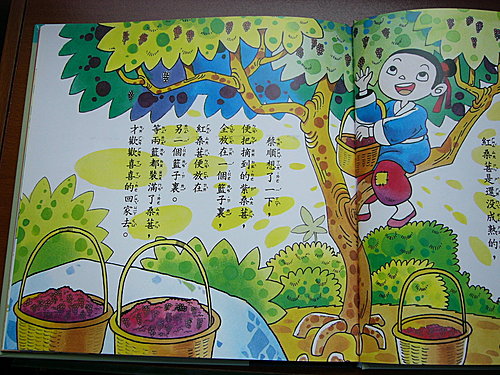 紅桑葚是還沒成熟的，
蔡順想了一下，
便把摘到的紫桑葚，
全放在一個籃子裏，
紅桑葚便放在
另一個籃子裏。
等兩籃都裝滿了桑葚，
才歡歡喜喜的回家去。